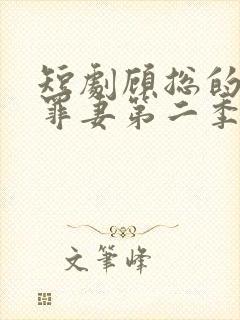 短劇顾総的
罪妻第二季
文筆峰